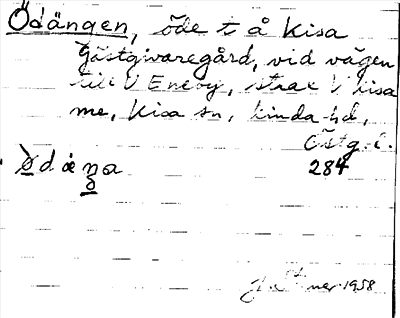 Ödängen, öde t å Kisa
Gästgivaregård, vid vägen
till V Eneby, strax V Kisa
me, Kisa sn, Kinda hd,
Östg. l.
ødæŋa 284
1958